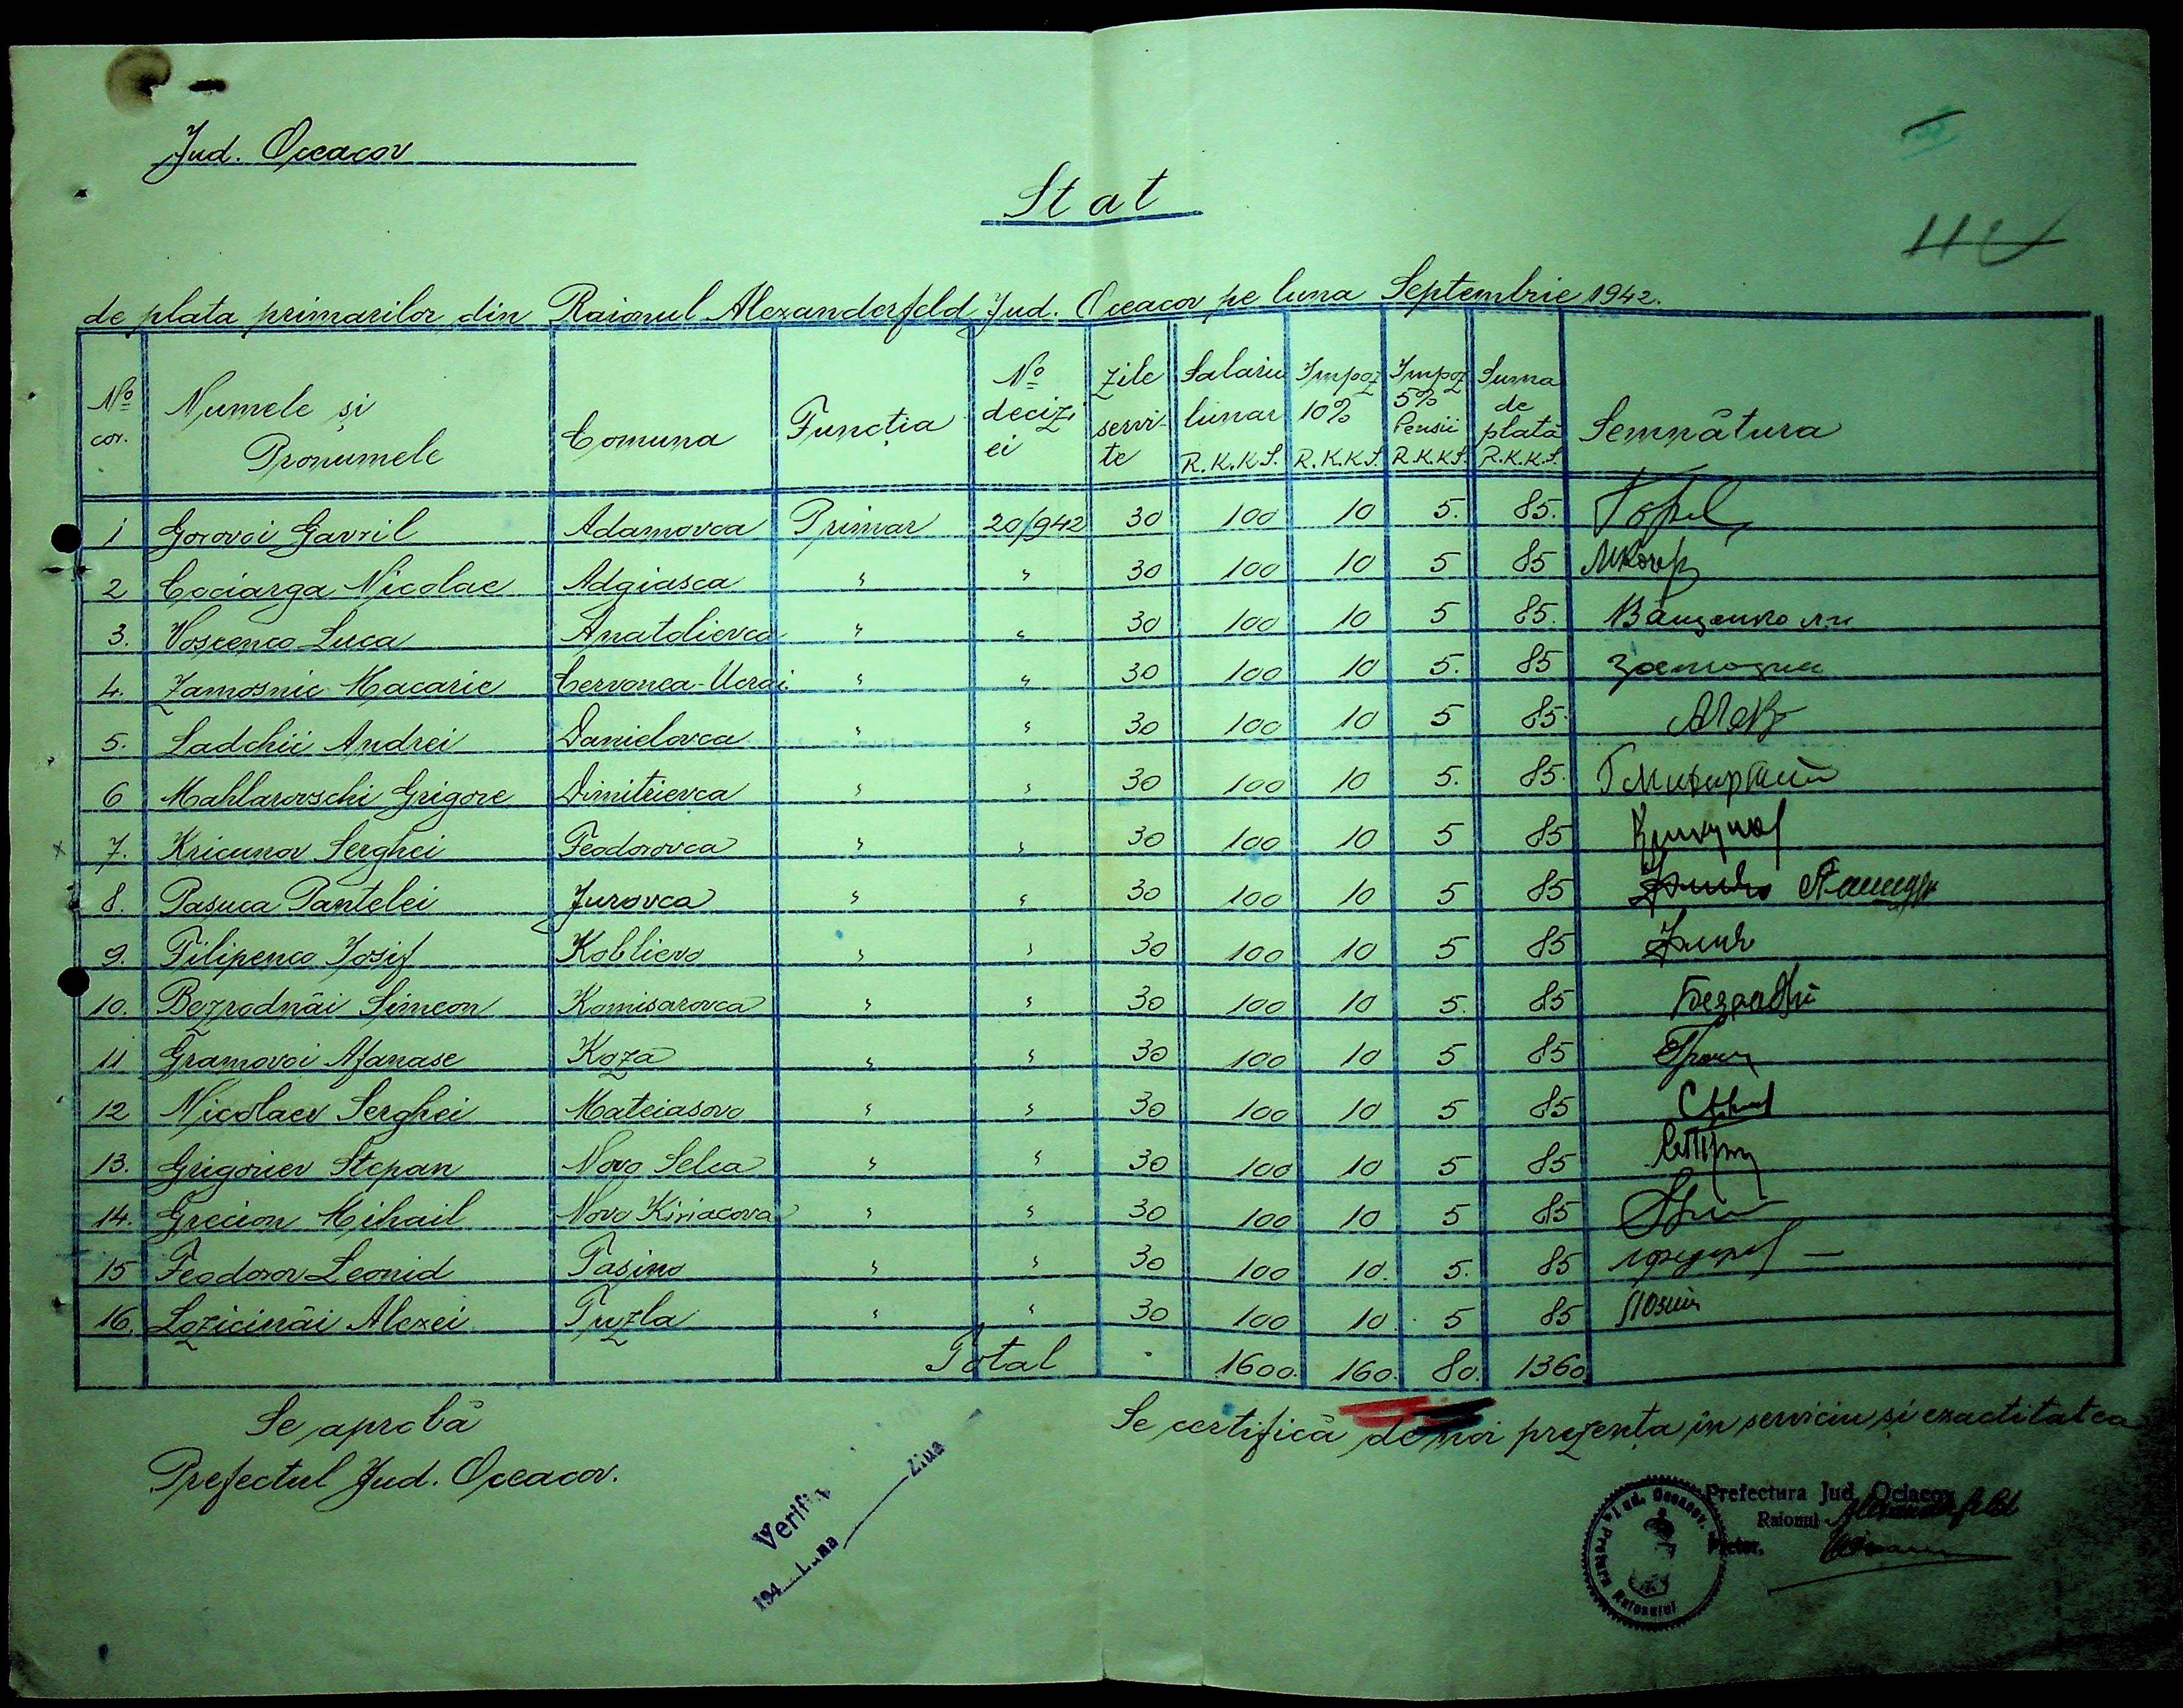 Jud. Oceacov
Stat
de plata primarilor din Raionul Alexanderfeld Jud. Oceacov pe luna Septembrie 1942.
No cor. Numele și Pronumele Comuna Funcția No decizi ei zile servi- te Salariu lunar R.K.K.S. Impoz 10% R.K.K.S. Impoz 5% Pensii R.K.K.S. Suma de plată R.K.K.S. Semnătura
1 Gorovoi Gavril Adamovca Primar 20/942 30 100 10 5. 85.
2 Cociarga Nicolae Adgiasca " " 30 100 10 5 85
3. Voscenco Luca Anatolievca " " 30 100 10 5 85. Ващенко
4. Zamosnic Macarie Cervonea-Ucrai. " " 30 100 10 5. 85
5. Ladchii Andrei Danielovca " " 30 100 10 5 85.
6 Mahlarovschi Grigore Dimitrievca " " 30 100 10 5. 85.
7. Kricunov Serghei Feodorovca " " 30 100 10 5 85
8. Pasuca Pantelei Jurovca " " 30 100 10 5 85
9. Filipenco Iosif Koblievo " " 30 100 10 5 85
10. Bezrodnâi Simeon Komisarovca " " 30 100 10 5. 85
11 Gramovoi Afanase Koza " " 30 100 10 5 85
12 Nicolaev Serghei Mateiasovo " " 30 100 10 5 85
13. Grigoriev Stepan Novo Selca " " 30 100 10 5 85
14. Grecion Mihail Novo Kiriacova " " 30 100 10 5 85
15 Feodorov Leonid Tasino " " 30 100 10. 5. 85
16. Lozicinâi Alexei Tuzla " " 30 100 10. 5 85
Total 1600. 160. 80. 1360.
Se aprobă
Prefectul Jud. Oceacov.
Se certifică de noi prezența în serviciu și exactitatea
194 Luna Ziua
Prefectura Jud. Ociacov
Raionul Alexanderfeld
Pretor,
Jud. Oceacov. Pretura Raionului